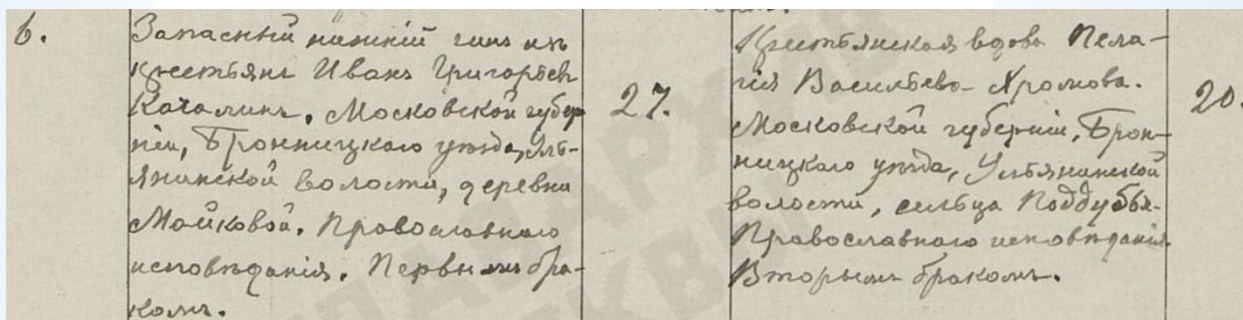 6.
Запасный нижній чинъ изъ
крестьянъ Иванъ Григорьев
Качалинъ, Московской губер
ніи, Бронницкаго уѣзда, Уль-
янинской волости, деревни
Майковой. Православнаго
исповѣданія. Первымъ бра-
комъ.
27.
Крестьянская вдова Пела-
гія Васильева Хромова.
Московской губерніи, Брон-
ницкаго уѣзда, Ульянинской
волости, сельца Поддубья.
Православнаго исповѣданія.
Вторымъ бракомъ.
20.